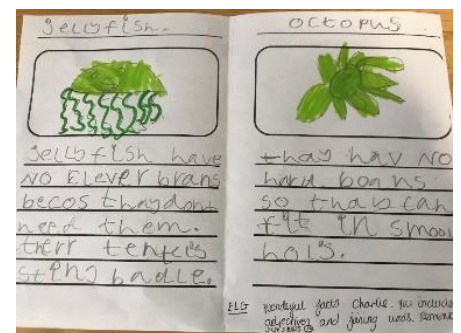 jellyfish.
jellyfish have
NO ELever brans
becos thaydont
need them.
therr tentels
sting badle.
octopus
thay hav NO
hard boans
so thay can
fit in smool
hols.
ELG
Wonderful facts Charlie. You included
adjectives and joining words.